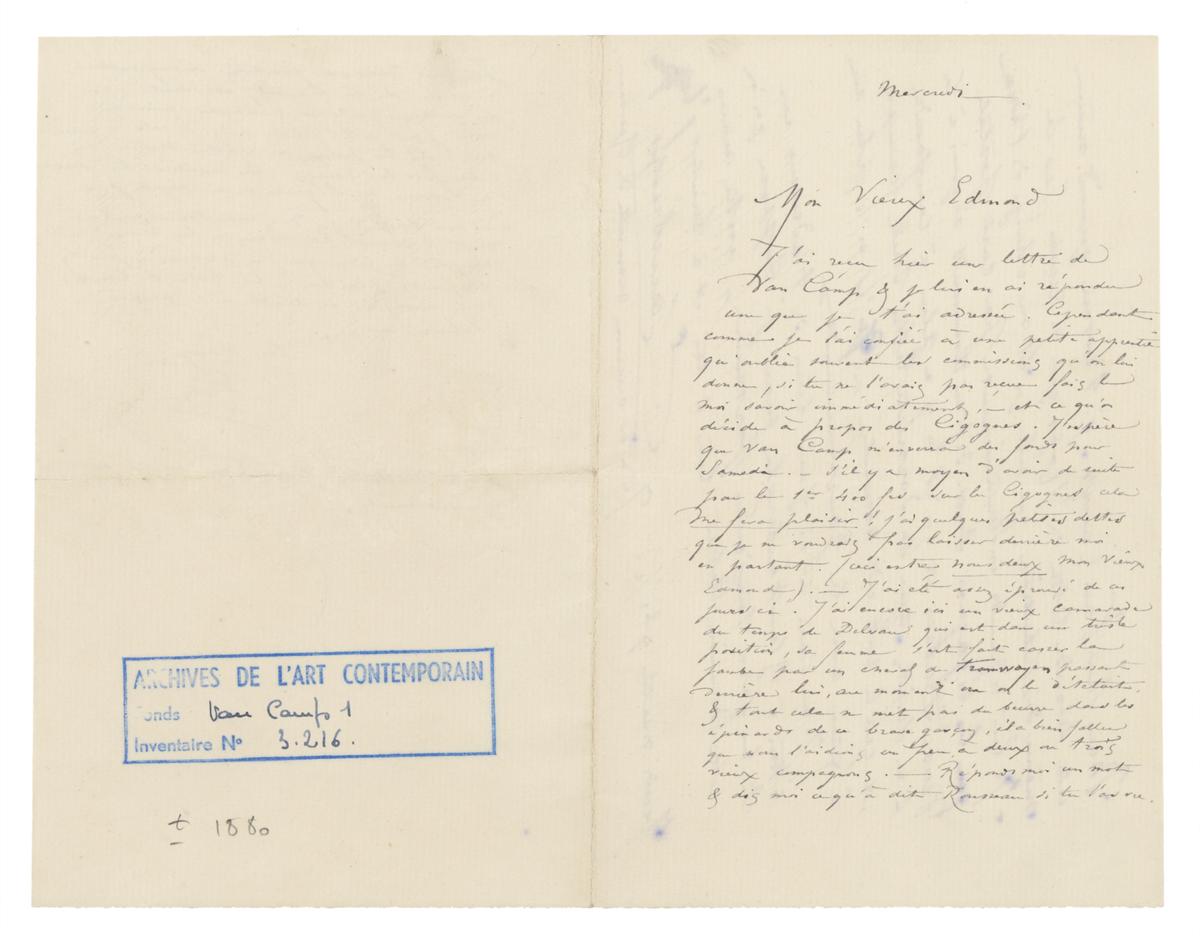 ARCHIVES DE L'ART CONTEMPORAIN
Fonds Van Camp 1
Inventaire N° 3.216.
± 1880
Mercredi
Mon Vieux Edmond
J'ai reçu hier une lettre de
Van Camp & je lui en ai répondu
une que je t'ai adressée. Cependant
comme je l'ai confiée à une petite apprentie
qui oublie souvent les commissions qu'on lui
donne, si tu ne l'avais pas reçue fais le
moi savoir immédiatement, – et ce qu'on
décide à propos des Cigognes. J'espère
que Van Camp m'enverra des fonds pour
Samedi. – S'il y a moyen d'avoir de suite
pour le 1er 400 frs sur les Cigognes cela
me fera plaisir ! j'ai quelques petites dettes
que je ne voudrais pas laisser derrière moi
en partant. (ceci entre nous deux mon vieux
Edmond). — J'ai été assez éprouvé de ces
jours ci. J'ai encore ici un vieux camarade
du temps de Delvau qui est dans une triste
position, sa femme s'est fait casser la
jambe par un cheval de tramway passant
derrière lui, au moment où on le dételait.
& tout cela ne met pas du beurre dans les
épinards de ce brave garçon, il a bien fallu
que nous l'aidions un peu à deux ou trois
vieux compagnons. — Réponds moi un mot
& dis moi ce qu'a dit Rousseau si tu l'as vu.